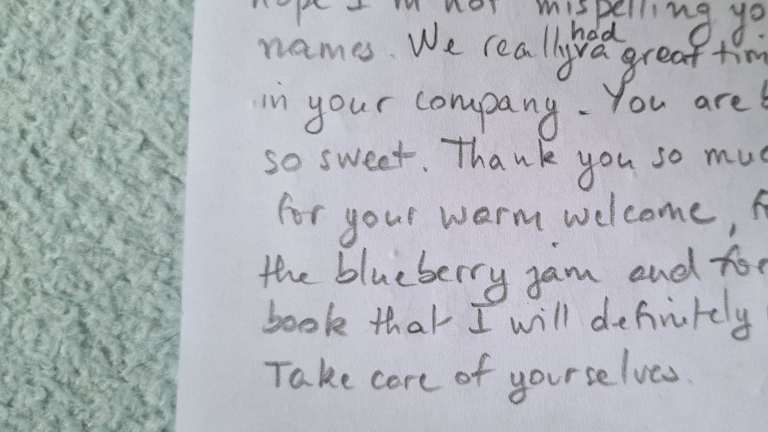 hope I'm not mispelling yo
names. We really had a great tim
in your company. You are b
so sweet. Thank you so muc
for your warm welcome, f
the blueberry jam and for
book that I will definitely
Take care of yourselves.